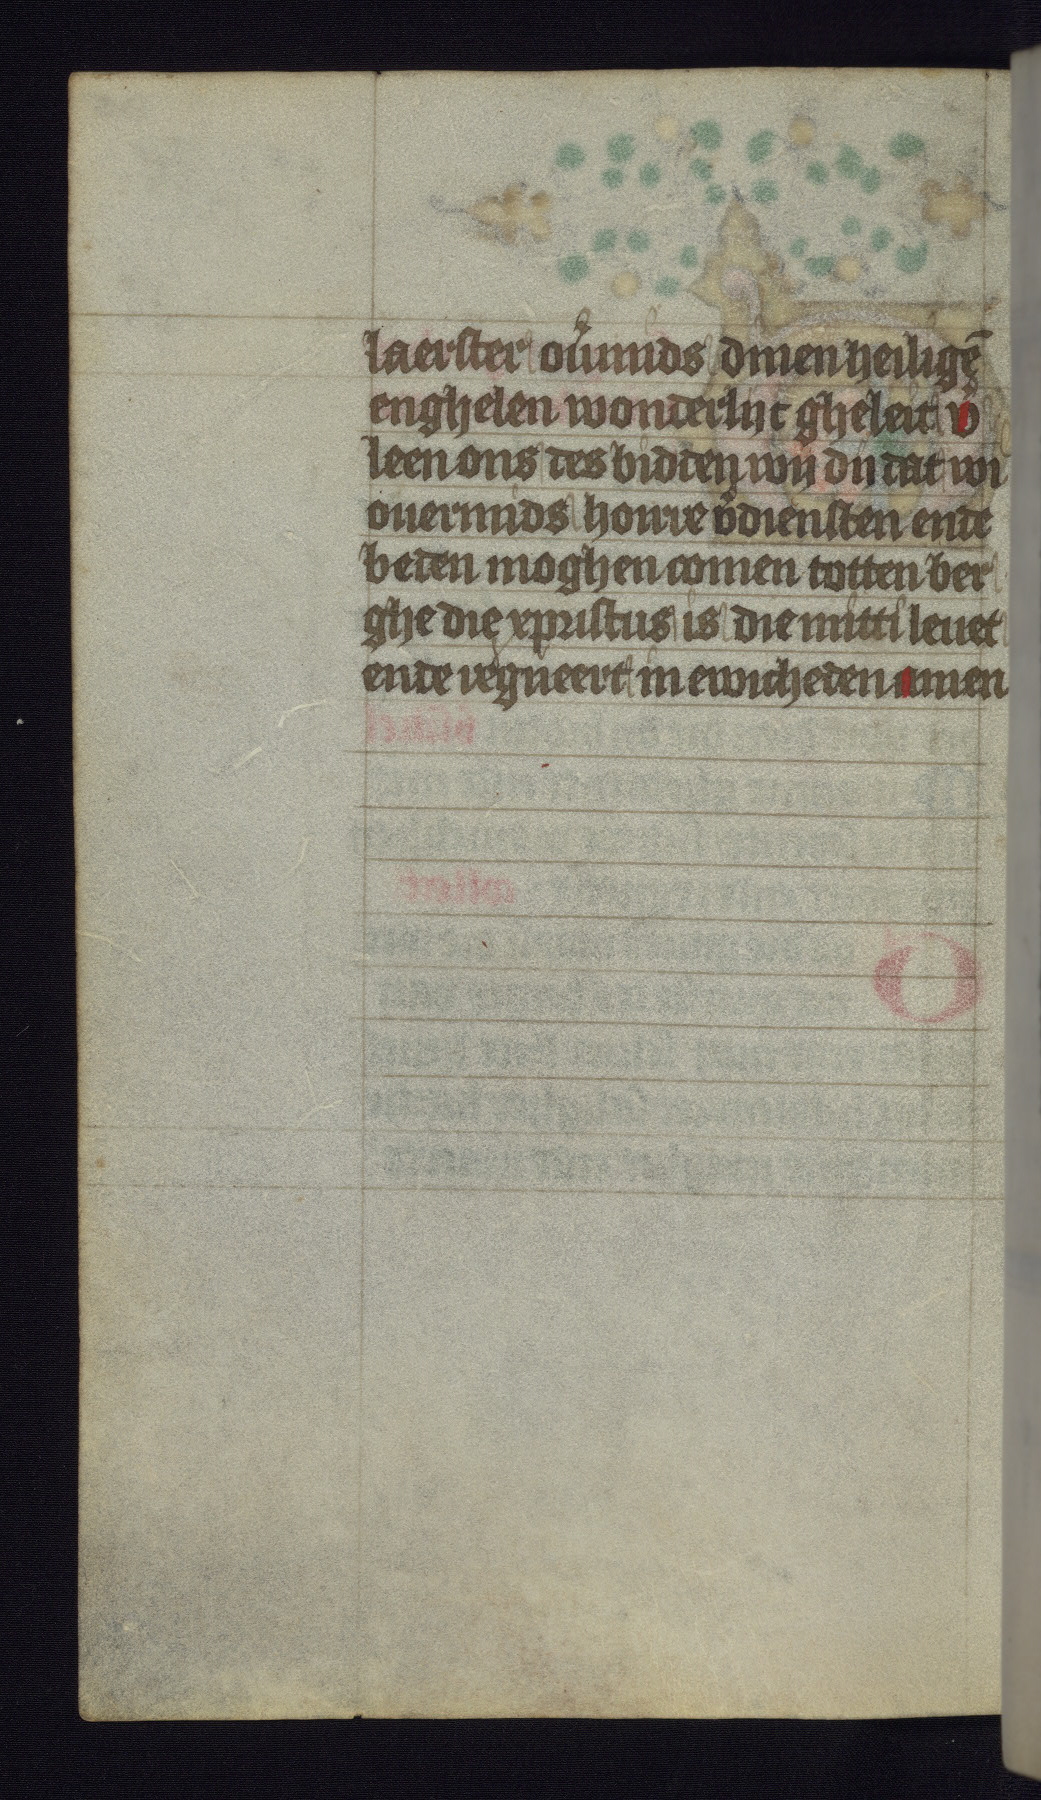 laerster ouͥmids dinen heiligē
enghelen wonderlijt gheleit vͦ
leen ons des bidden wij dij dat wi
ouermids houre vͦdiensten ende
beden moghen comen totten ber
ghe die xpristus is die mitti leuet
ende regneert in ewicheden amen